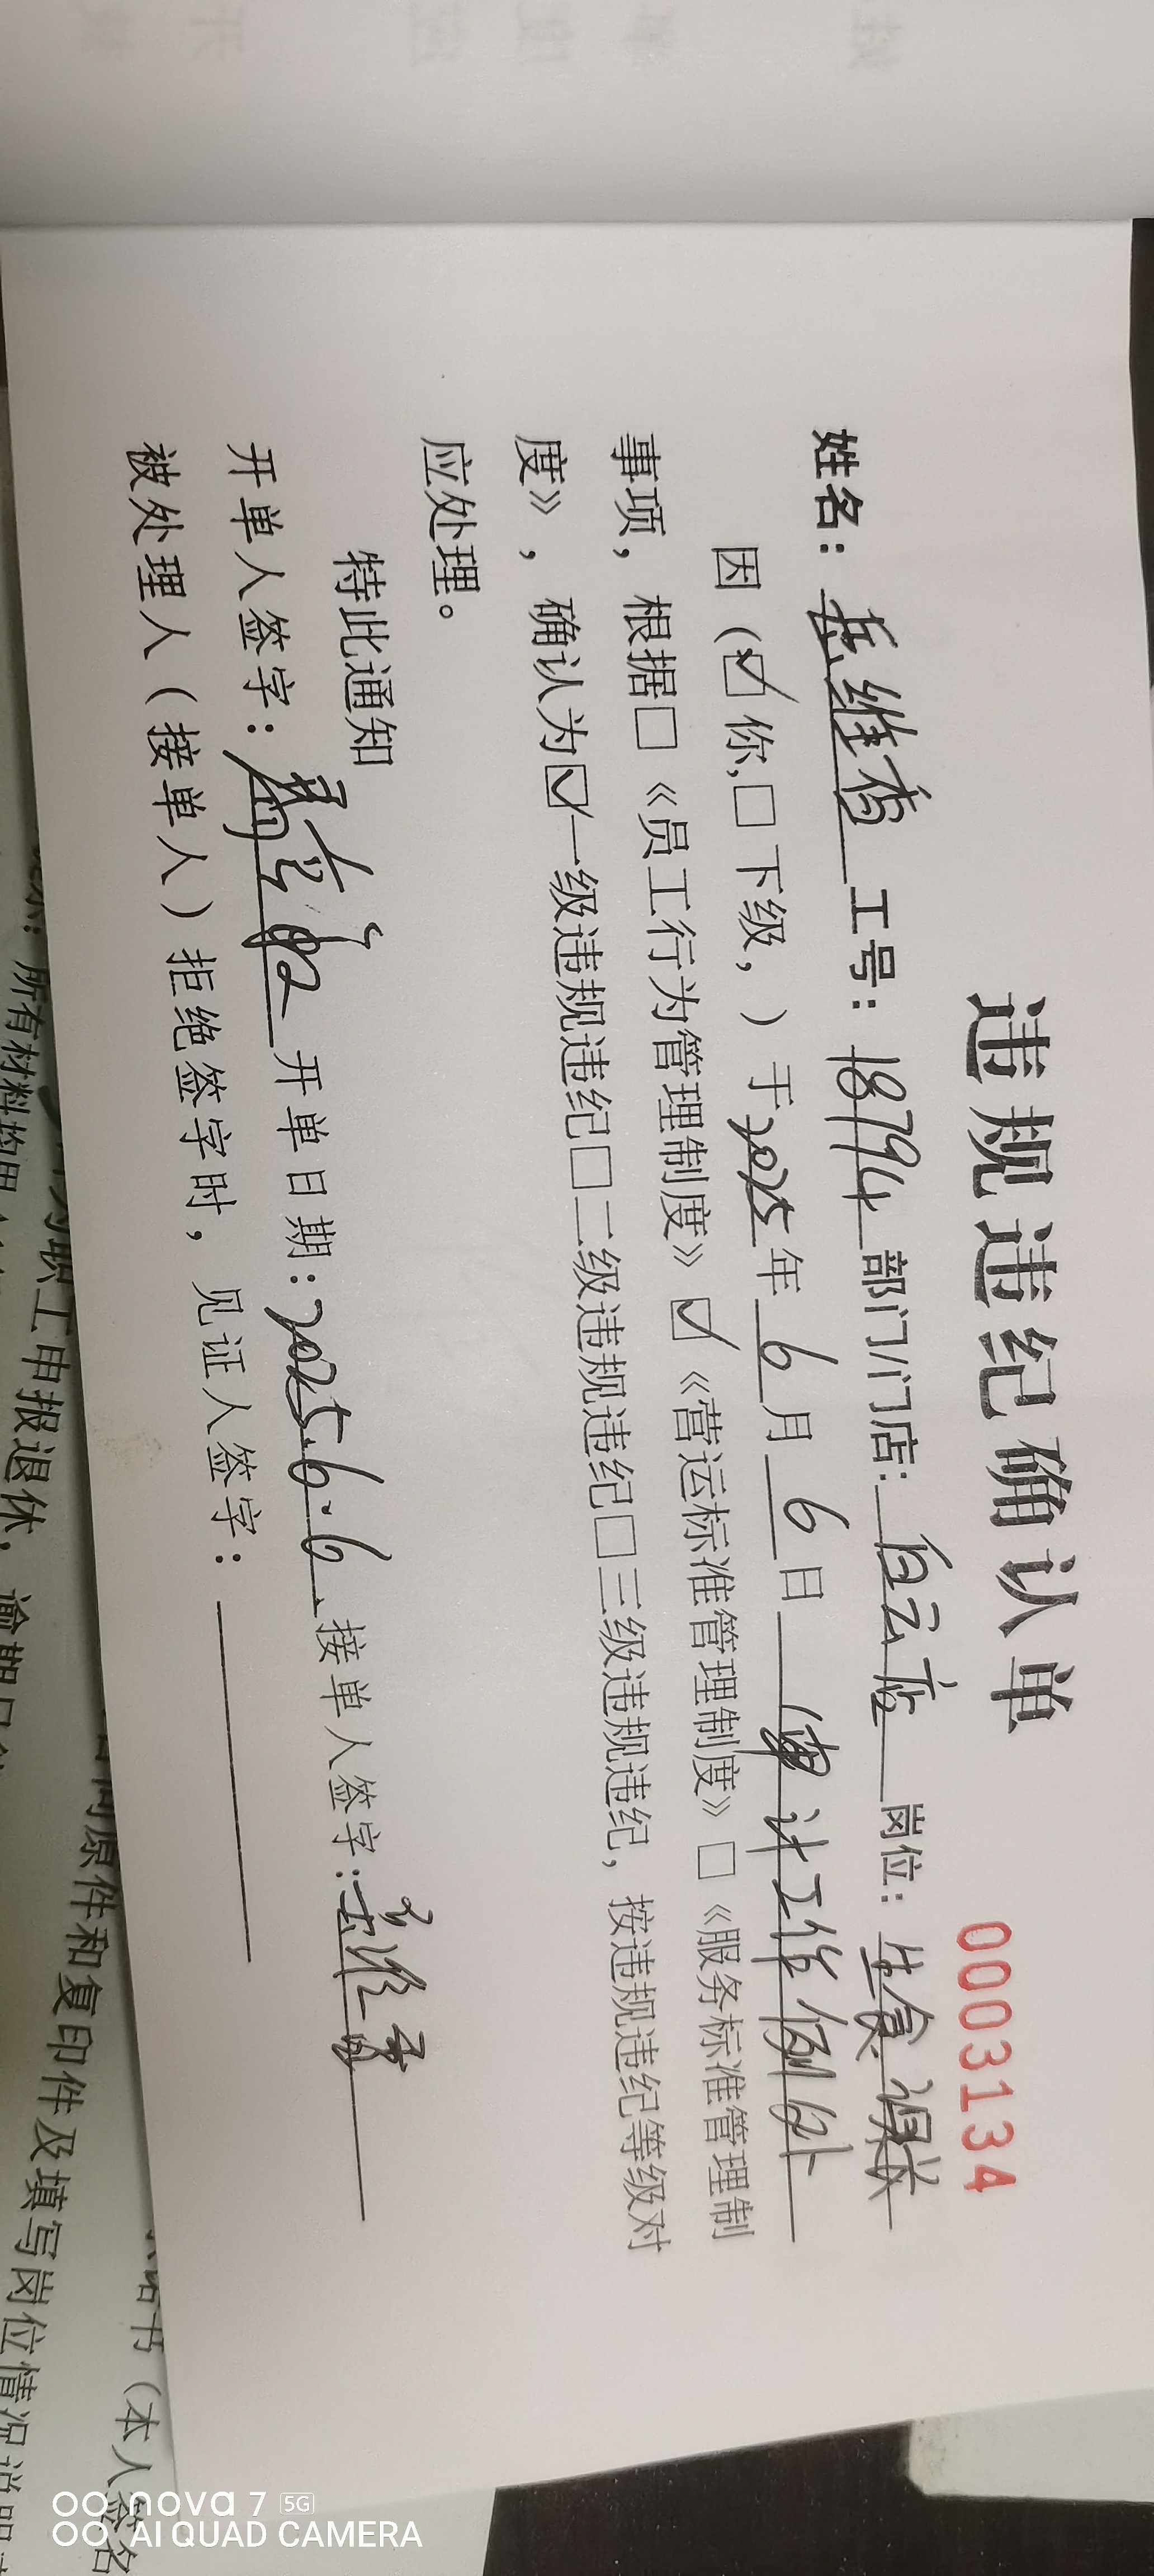 违规违纪确认单
0003134
姓名：岳维香 工号：18794 部门/门店：白云店 岗位：生食课长
因（☑你，□下级，）于2025年6月6日 审计工作例外
事项，根据□《员工行为管理制度》☑《营运标准管理制度》□《服务标准管理制
度》，确认为☑一级违规违纪□二级违规违纪□三级违规违纪，按违规违纪等级对
应处理。
特此通知
开单人签字： 开单日期：2025.6.6 接单人签字：岳维香
被处理人（接单人）拒绝签字时，见证人签字：
所有材料均用
为职工申报退休，逾期
原件和复印件及填写岗位情况说明
书（本人签名
nova 7 5G
AI QUAD CAMERA